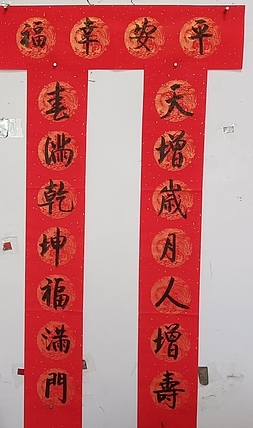 平安幸福
天增歲月人增壽
春滿乾坤福滿門